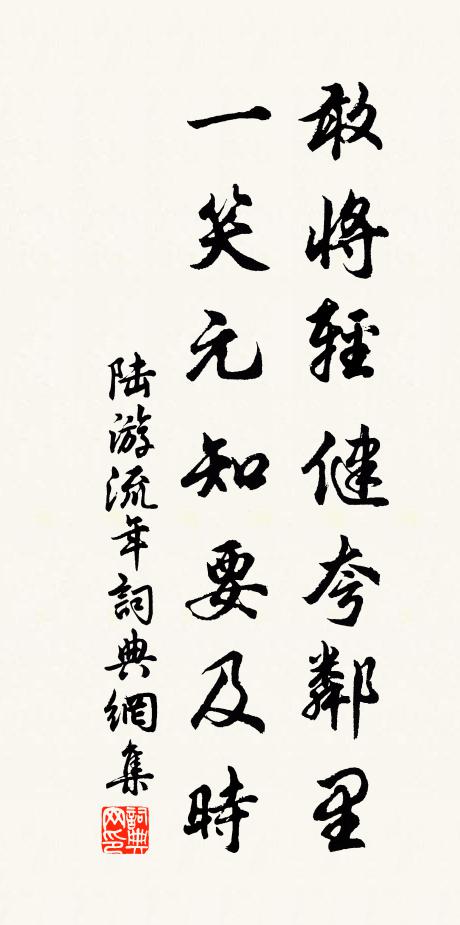 敢將輕健夸鄰里
一笑元知要及時
陆游流年詞典網集
詞典网印